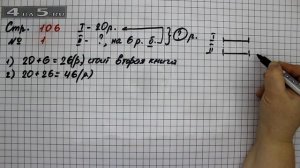 4APS.RU
Стр. 106
№ 1
I - 20р.
II - ?, на 6 р. б.
? р.
I
II
1) 20+6=26(р) стоит вторая книга
2) 20+26=46(р)